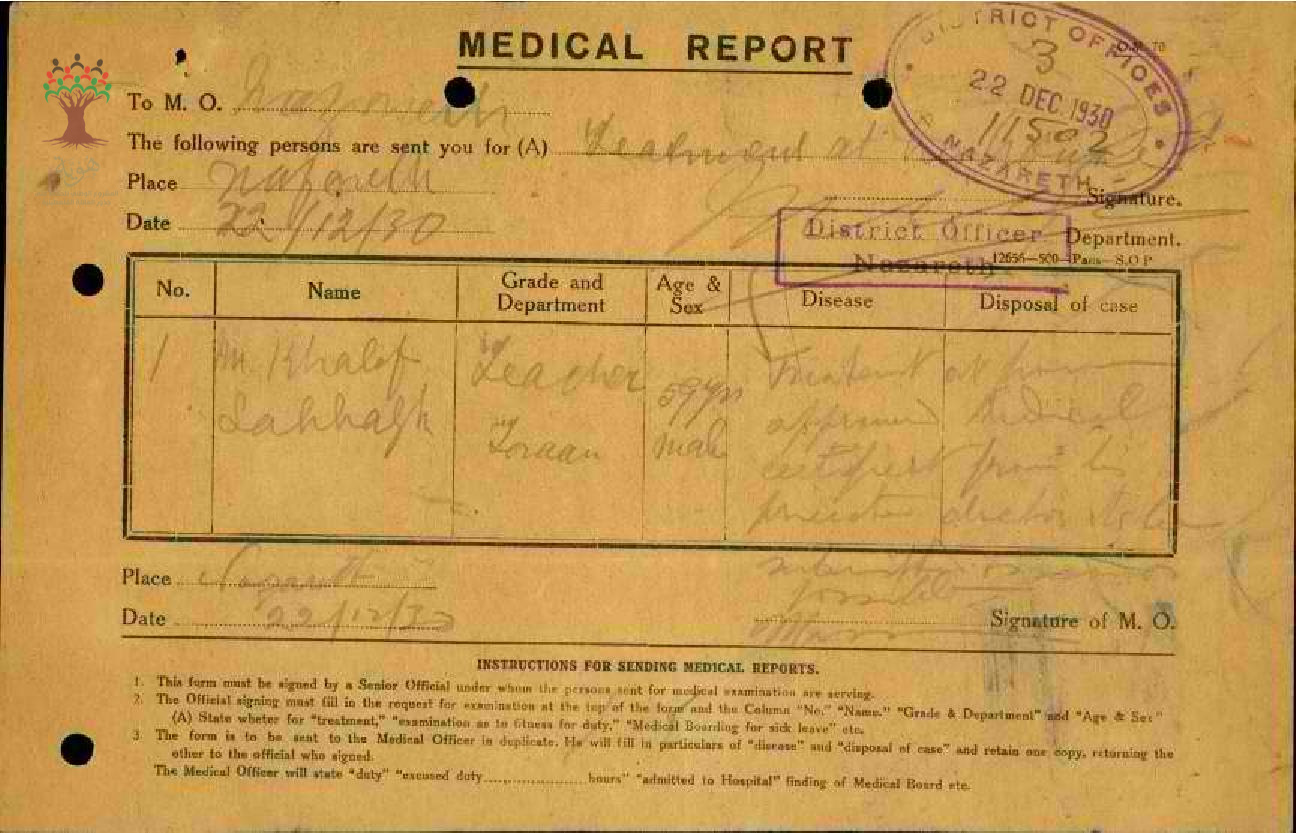 MEDICAL REPORT
DISTRICT OFFICES
3
22 DEC 1930
11502
NAZARETH
To M. O. Nazareth
The following persons are sent you for (A) Treatment at
Place Nazareth
Signature.
Date 22/12/30
District Officer
Nazareth
Department.
12656—500—Pass—S.O.P
No. Name Grade and Department Age & Sex Disease Disposal of case
1 M. Khalaf Teacher 59 yrs Treatment at home
Toraan male approved Medical
certificate from his
private doctor
Place Nazareth
Date 22/12/30
Signature of M. O.
INSTRUCTIONS FOR SENDING MEDICAL REPORTS.
1. This form must be signed by a Senior Official under whom the persons sent for medical examination are serving.
2. The Official signing must fill in the request for examination at the top of the form and the Column "No." "Name." "Grade & Department" and "Age & Sex"
(A) State wheter for "treatment," "examination as to fitness for duty," "Medical Boarding for sick leave" etc.
3. The form is to be sent to the Medical Officer in duplicate. He will fill in particulars of "disease" and "disposal of case" and retain one copy, returning the
other to the official who signed.
The Medical Officer will state "duty" "excused duty.....................hours" "admitted to Hospital" finding of Medical Board etc.